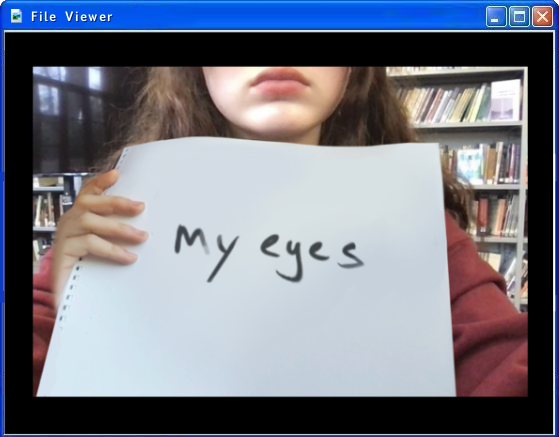 File Viewer
My eyes